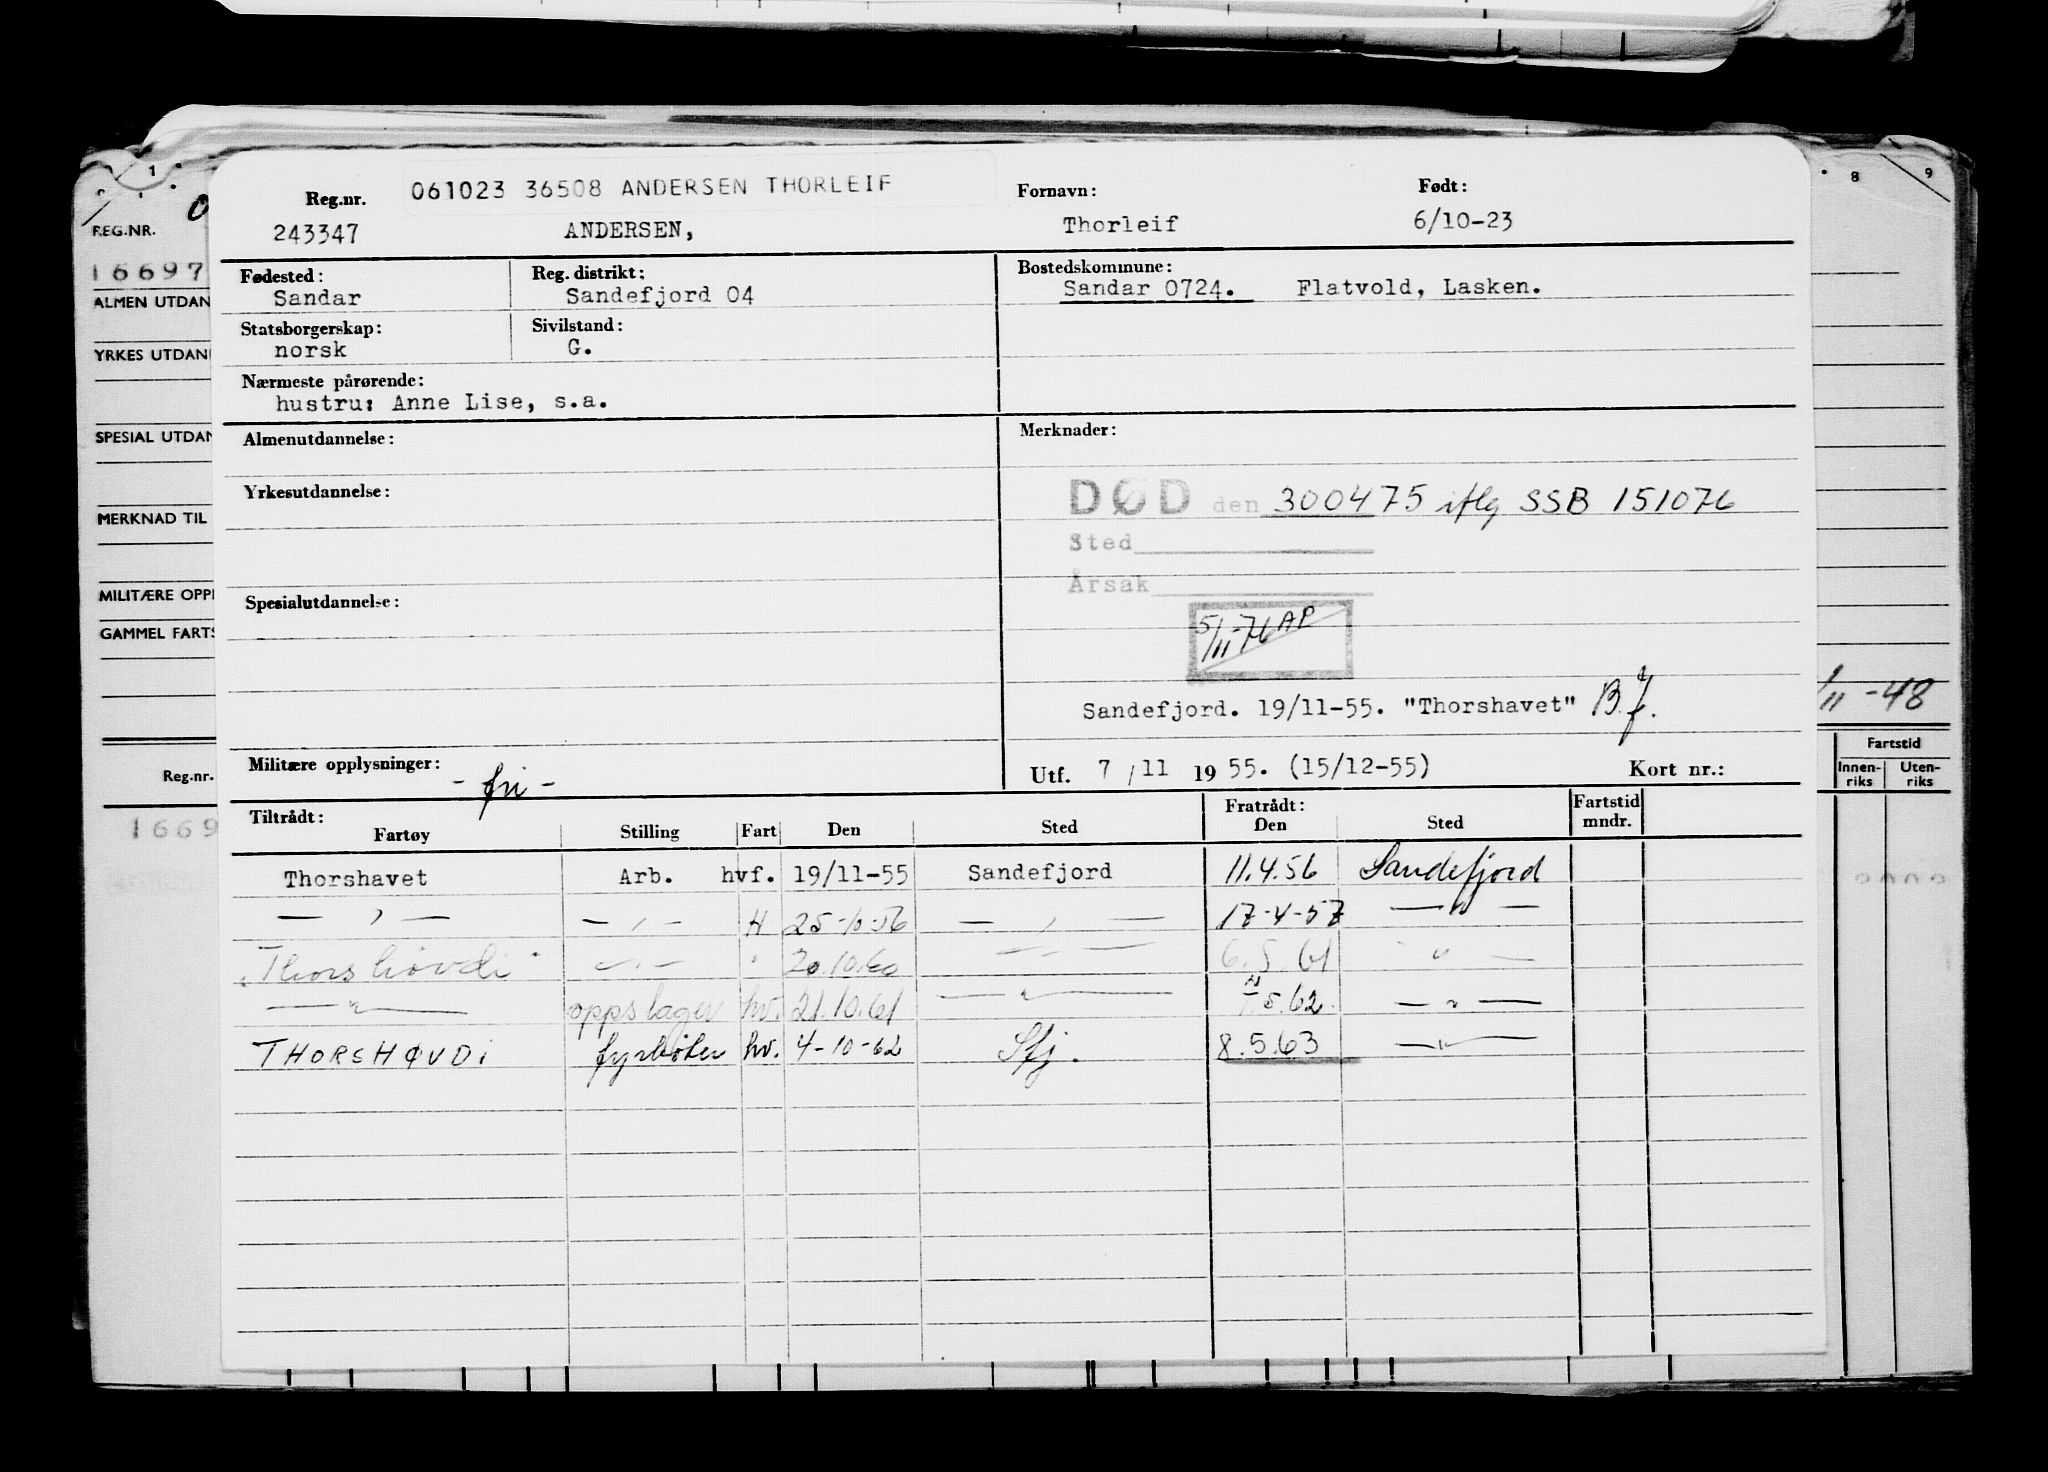 Reg.nr. 061023 36508 ANDERSEN THORLEIF Fornavn: Født:
243347 ANDERSEN, Thorleif 6/10-23
Fødested: Reg. distrikt: Bostedskommune:
Sandar Sandefjord 04 Sandar 0724. Flatvold, Lasken.
Statsborgerskap: Sivilstand:
norsk G.
Nærmeste pårørende:
hustru: Anne Lise, s.a.
Almenutdannelse: Merknader:
Yrkesutdannelse: DØD den 300475 iflg SSB 151076
Sted
Årsak
Spesialutdannelse:
5/11-76 AP
Sandefjord. 19/11-55. "Thorshavet" B.J.
Militære opplysninger: - fri - Utf. 7/11 1955. (15/12-55) Kort nr.:
Tiltrådt: Fratrådt: Fartstid
Fartøy Stilling Fart Den Sted Den Sted mndr.
Thorshavet Arb. hvf. 19/11-55 Sandefjord 11.4.56 Sandefjord
— " — — " — H 25-10-56 — " — 17-4-57 — " —
"Thorshøvdi" — " — " 20.10.60 — " — 6.5.61 — " —
— " — oppslager hv. 21.10.61 — " — 5.62 — " —
THORSHØVDi fyrbøter hv. 4-10-62 Sfj. 8.5.63 — " —
1 8 9
REG.NR.
16697
ALMEN UTDAN
YRKES UTDAN
SPESIAL UTDAN
MERKNAD TIL
MILITÆRE OPPL
GAMMEL FARTS
/11 -48
Reg.nr.
Fartstid
Innen-riks Uten-riks
1669